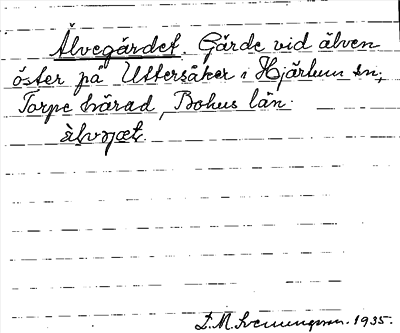 Älvegärdet. Gärde vid älven
öster på Uttersåker i Hjärtum sn,
Torpe härad, Bohus län.
älvojæt.
L. M. Svenungsson. 1935.